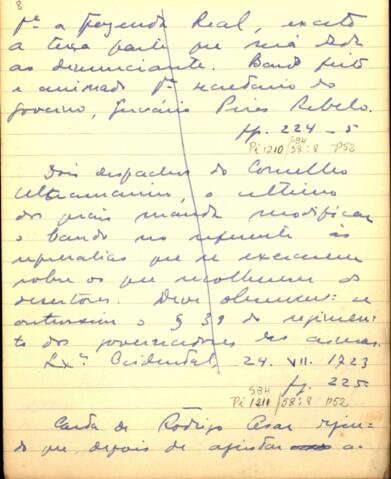 8
pª a fazenda Real, exceto
a terça parte que será dada
ao denunciante. Bando feito
e assinado pº secretario do
governo, Gervásio Pires Rebelo.
fp. 224-5
594
Pi 1210/58:8 P52
Dois despachos do Conselho
Ultramarino, o ultimo
dos quais manda modificar
o bando no referente às
represalias que se exercerem
sobre os que recolherem os
desertores. Deve observar-se
o § 39 do regimen-
to dos governadores das
Lxª Ocidental, 24. VII. 1723
fp. 225
594
Pi 1211/58:8 P52
Carta de Rodrigo Cesar
do que, depois de a-